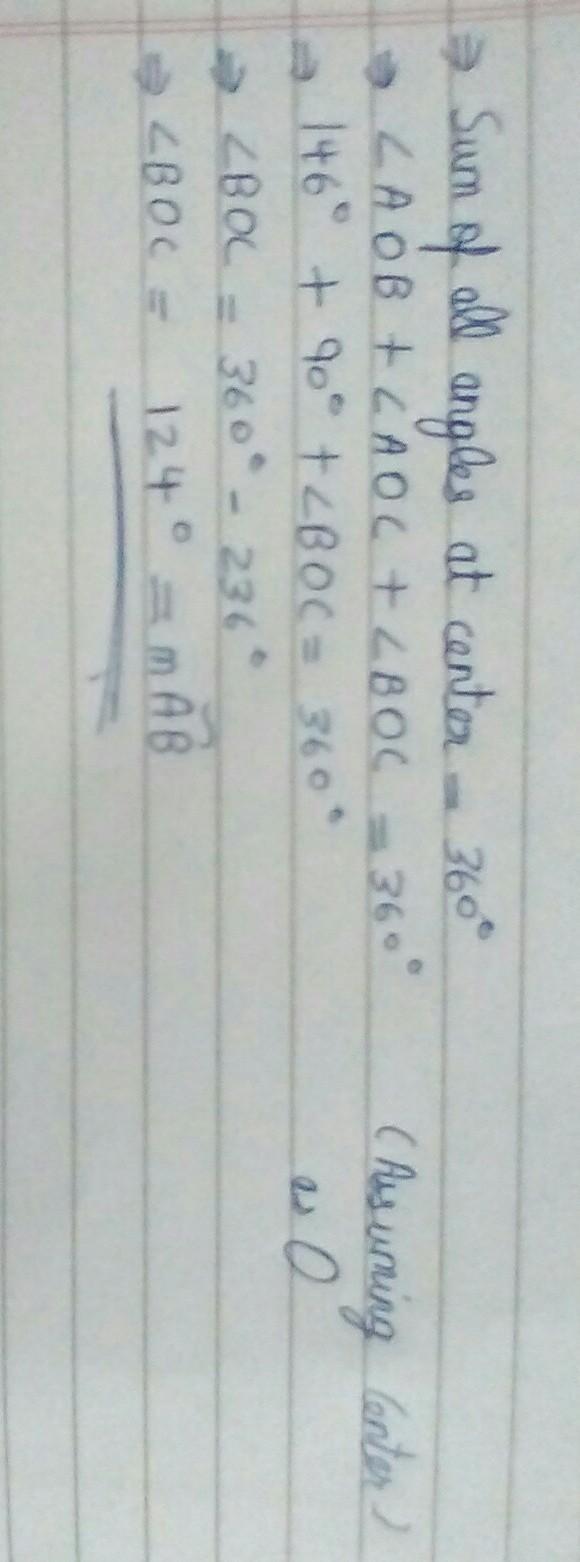 ⇒ Sum of all angles at center = 360°
⇒ ∠AOB + ∠AOC + ∠BOC = 360° (Assuming Center)
⇒ 146° + 90° + ∠BOC = 360° as O
⇒ ∠BOC = 360° - 236°
⇒ ∠BOC = 124° = m AB̆